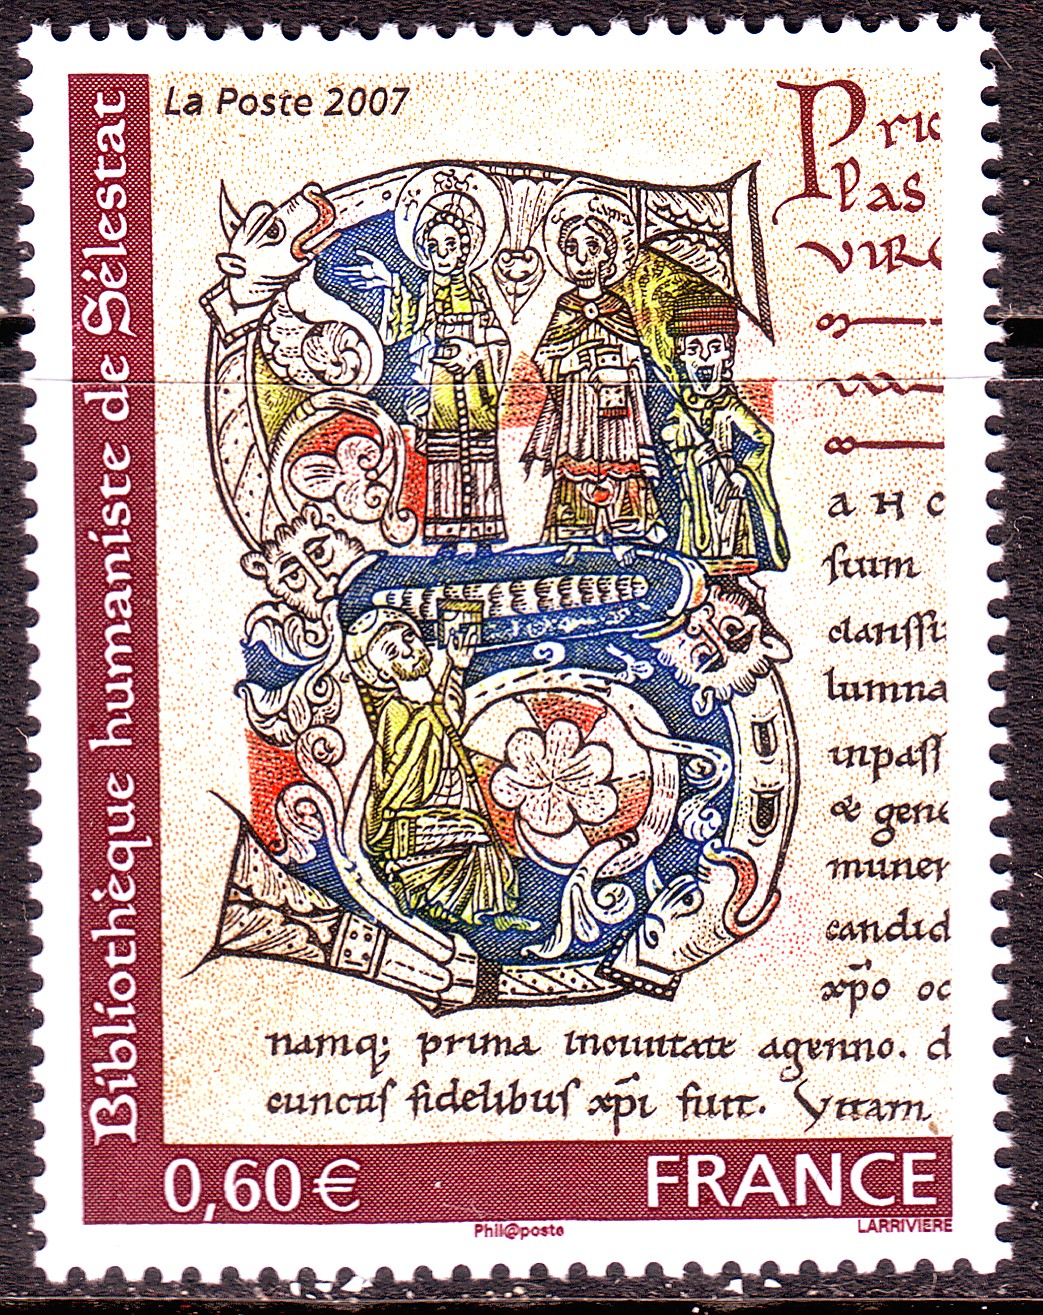 La Poste 2007
Bibliothèque humaniste de Sélestat
Pric
Plas
VIRG
A H C
ſuum
clariſſi
lumna
inpaſſ
& gene
muner
candid
xp̄o oc
namq; prima inciuitate agenno. d
cunctiſ fidelibuſ xp̄i fuit. Vitam
0,60€
FRANCE
Phil@poste
LARRIVIERE